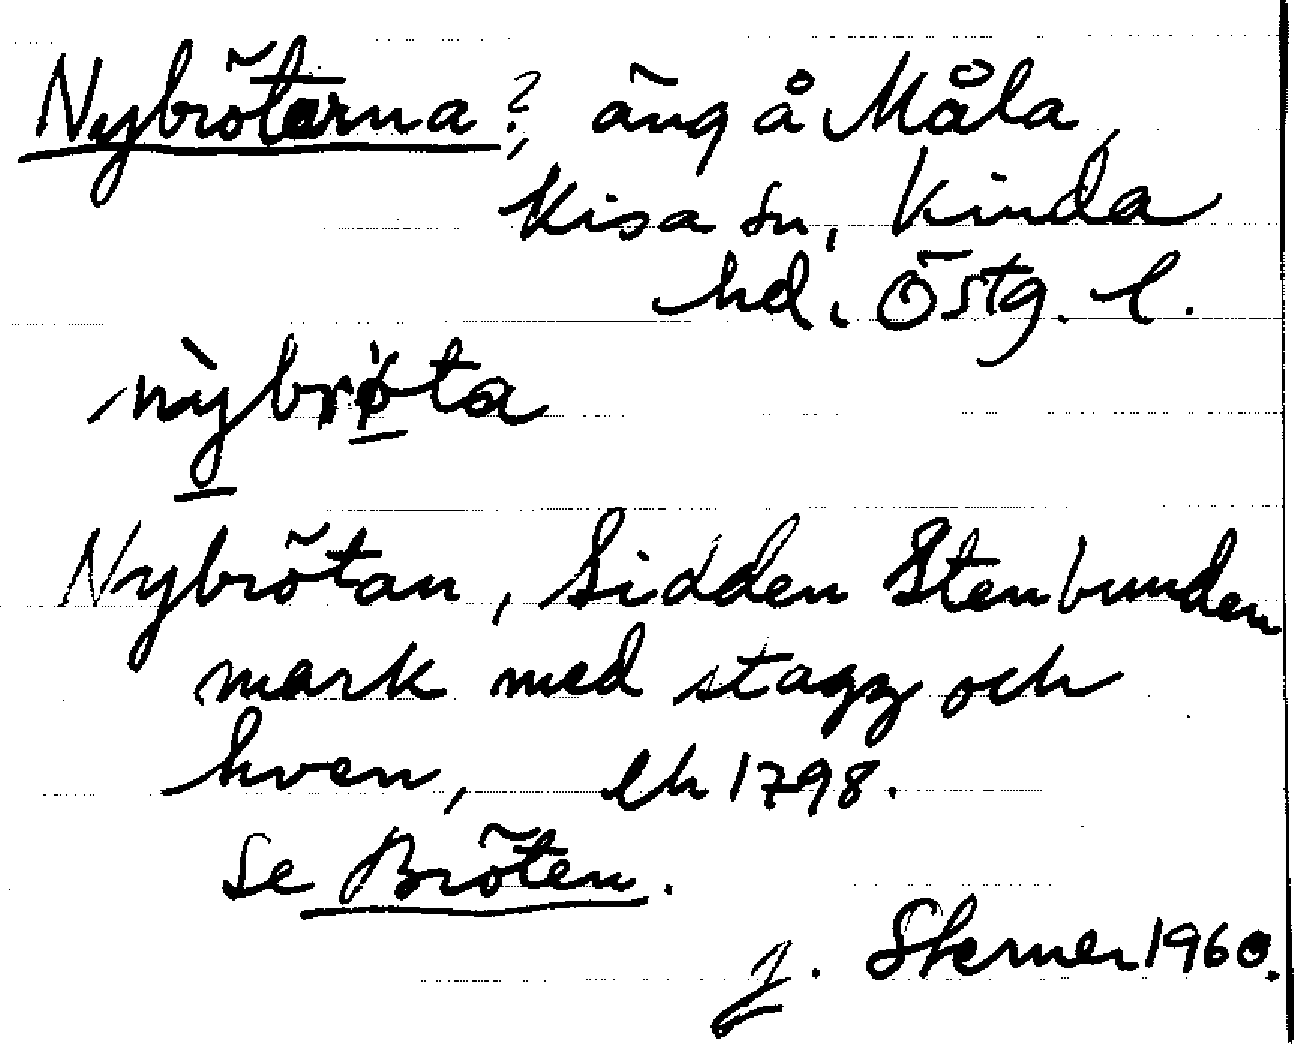 Nybrötarna?, äng å Måla,
Kisa sn, Kinda
hd. Östg. l.
nỳbrø̀ta
Nybrötan, Sidden Stenbunden
mark med stagg och
hven, lh 1798.
Se Bröten.
J. Sterner 1960.